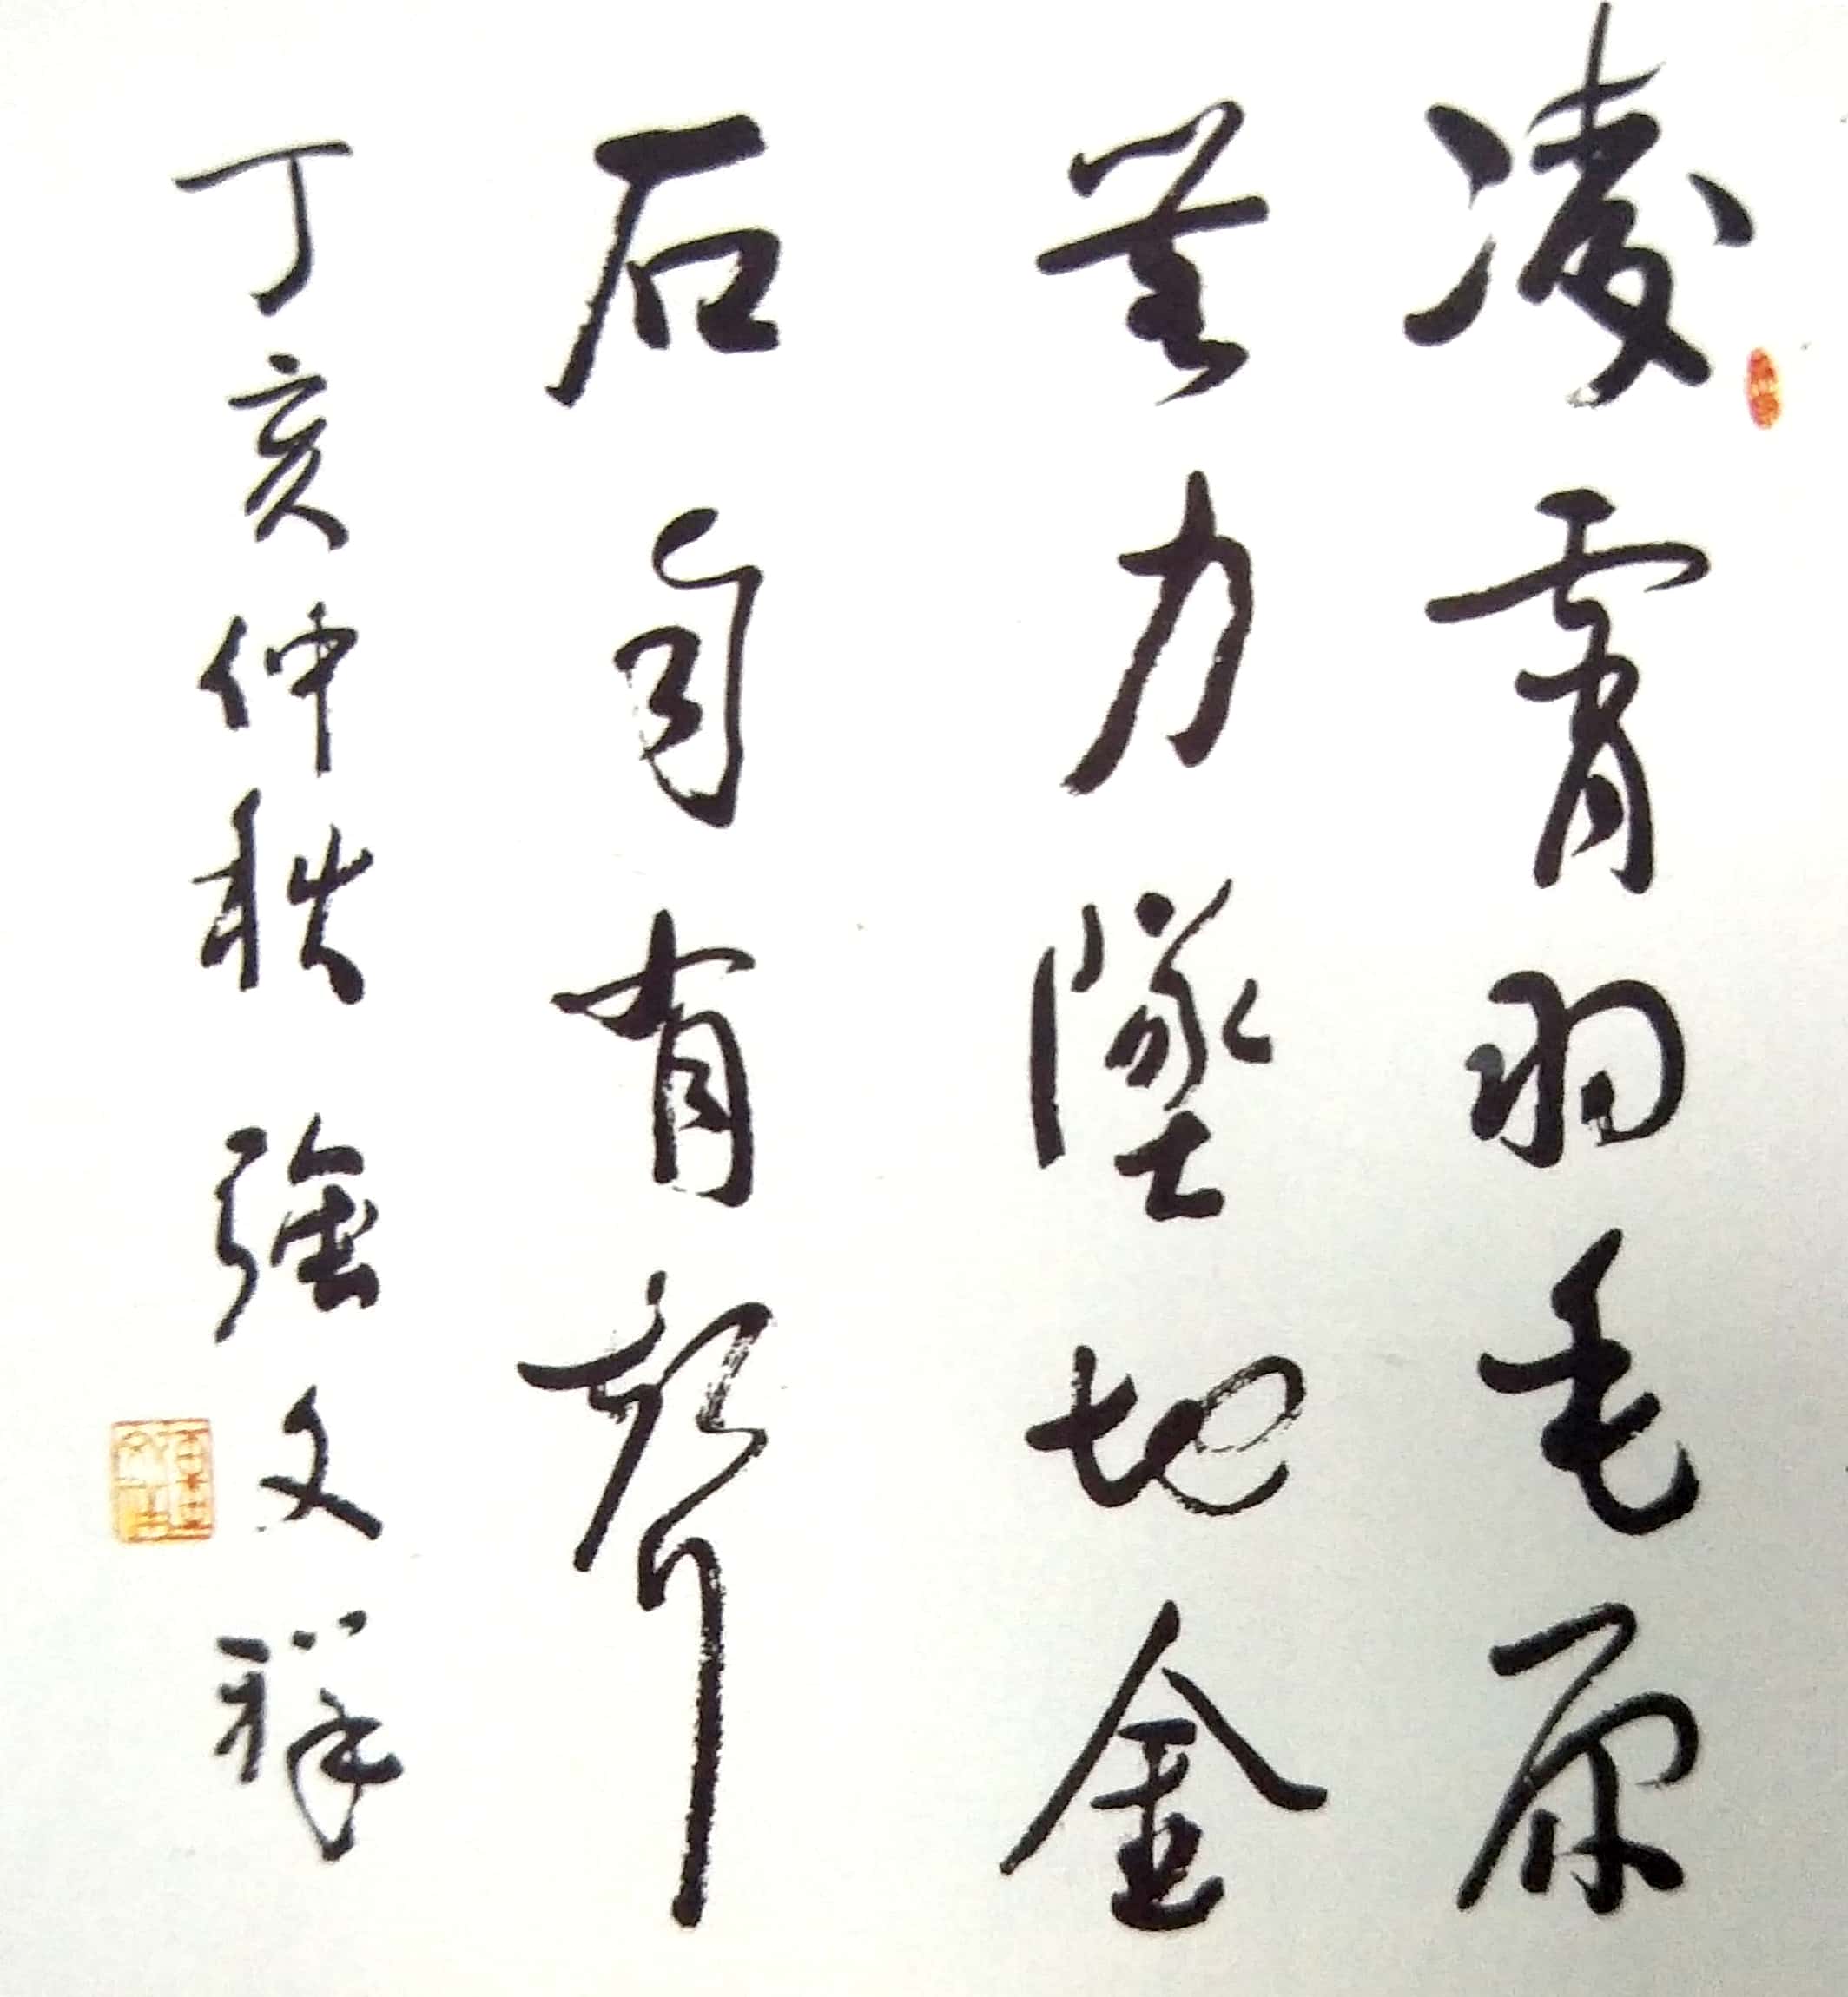 凌霄羽毛原
無力墜地金
石自有聲
丁亥仲秋 強文祥